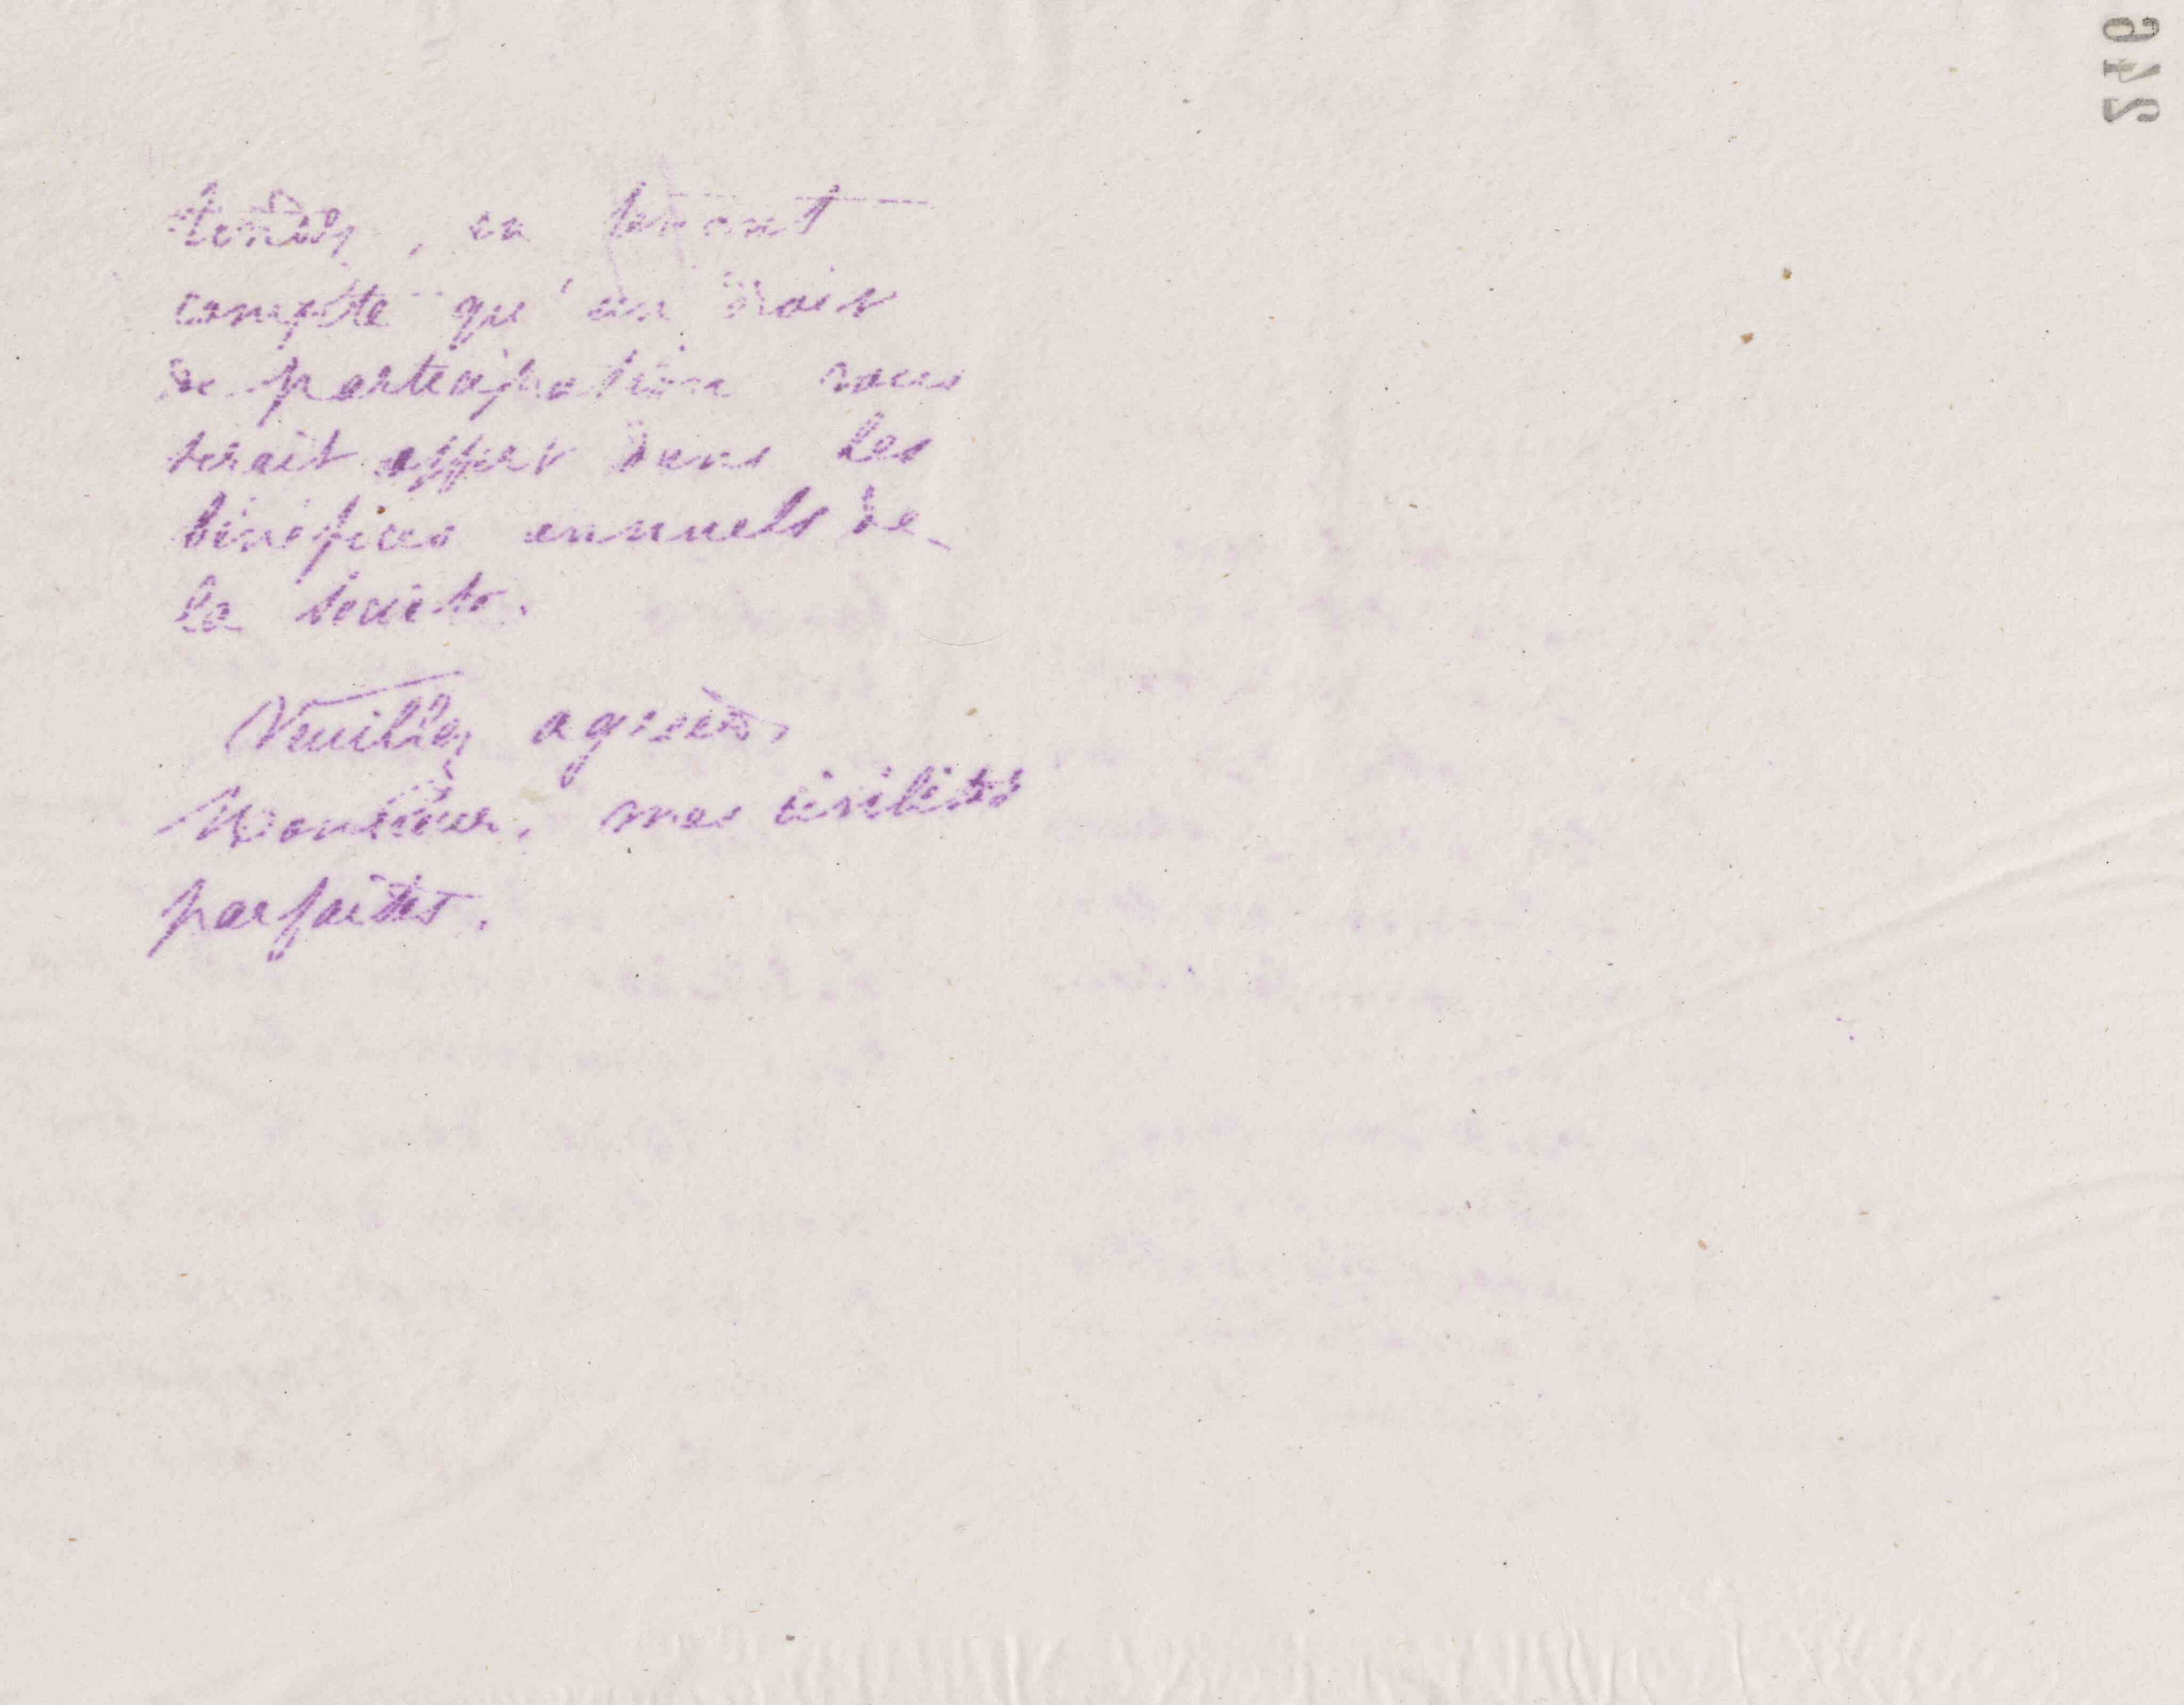 246
tendez, en tenant
compte qu'un droit
de participation vous
serait offert dans les
bénéfices annuels de
la Société.
Veuillez agréer,
Monsieur, mes civilités
parfaites.